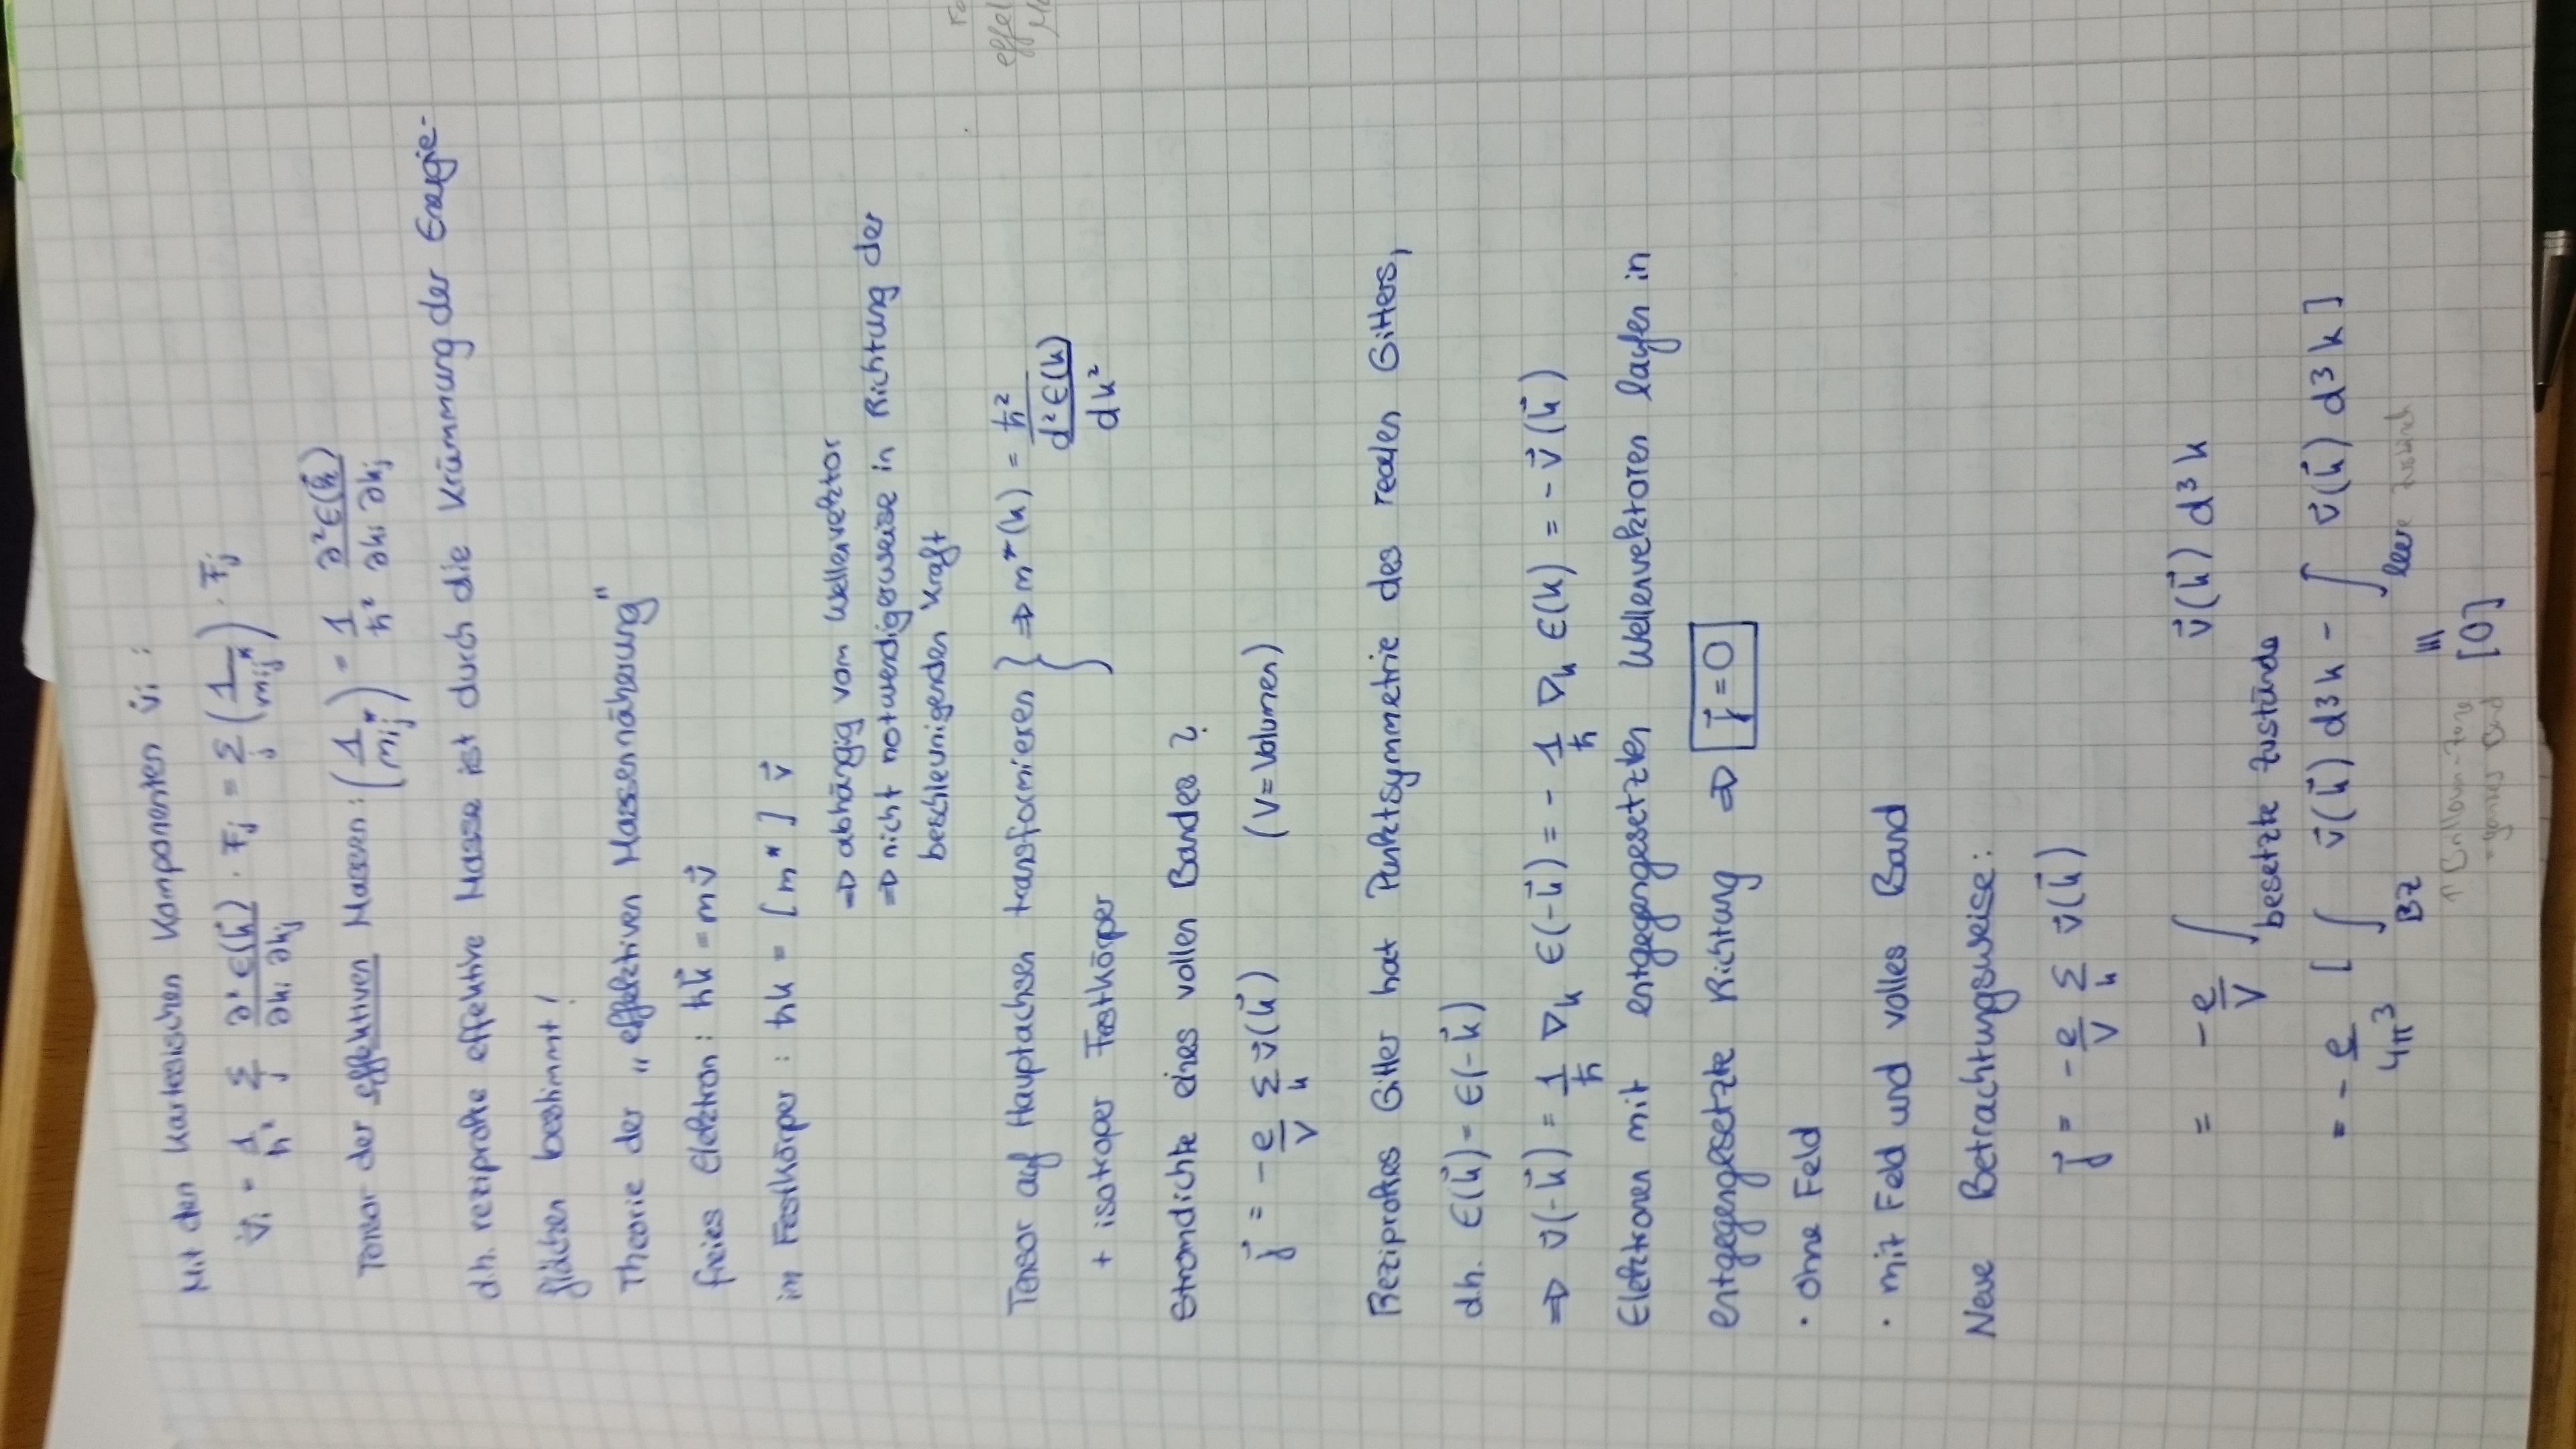 Mit den kartesischen Komponenten v̇i :
v̇i = 1/ħ² Σj ∂²ϵ(k⃗)/∂ki ∂kj · Fj = Σj (1/mij*) · Fj
Tensor der effektiven Massen: (1/mij*) = 1/ħ² ∂²ϵ(k⃗)/∂ki ∂kj
d.h. reziproke effektive Masse ist durch die Krümmung der Energie-
flächen bestimmt!
Theorie der „effektiven Massennäherung"
freies Elektron: ħk⃗ = mv⃗
im Festkörper : ħk = [m*] v⃗
⇒ abhängig vom Wellenvektor
⇒ nicht notwendigerweise in Richtung der
beschleunigenden Kraft
Tensor auf Hauptachsen transformieren } ⇒ m*(k) = ħ² / (d²ϵ(k)/dk²)
+ isotroper Festkörper
Stromdichte eines vollen Bandes?
j⃗ = -e/V Σk v⃗(k⃗) (V = Volumen)
Reziprokes Gitter hat Punktsymmetrie des realen Gitters,
d.h. ϵ(k⃗) = ϵ(-k⃗)
⇒ v⃗(-k⃗) = 1/ħ ∇k ϵ(-k⃗) = - 1/ħ ∇k ϵ(k) = - v⃗(k⃗)
Elektronen mit entgegengesetzten Wellenvektoren laufen in
entgegengesetzte Richtung ⇒ j⃗ = 0
· ohne Feld
· mit Feld und volles Band
Neue Betrachtungsweise:
j⃗ = -e/V Σk v⃗(k⃗)
= -e/V ∫besetzte Zustände v⃗(k⃗) d³k
= - e/4π³ [ ∫BZ v⃗(k⃗) d³k - ∫leere Zuständ v⃗(k⃗) d³k ]
↑ Brillouin-Zone
= ganzes Band
≡ [0]